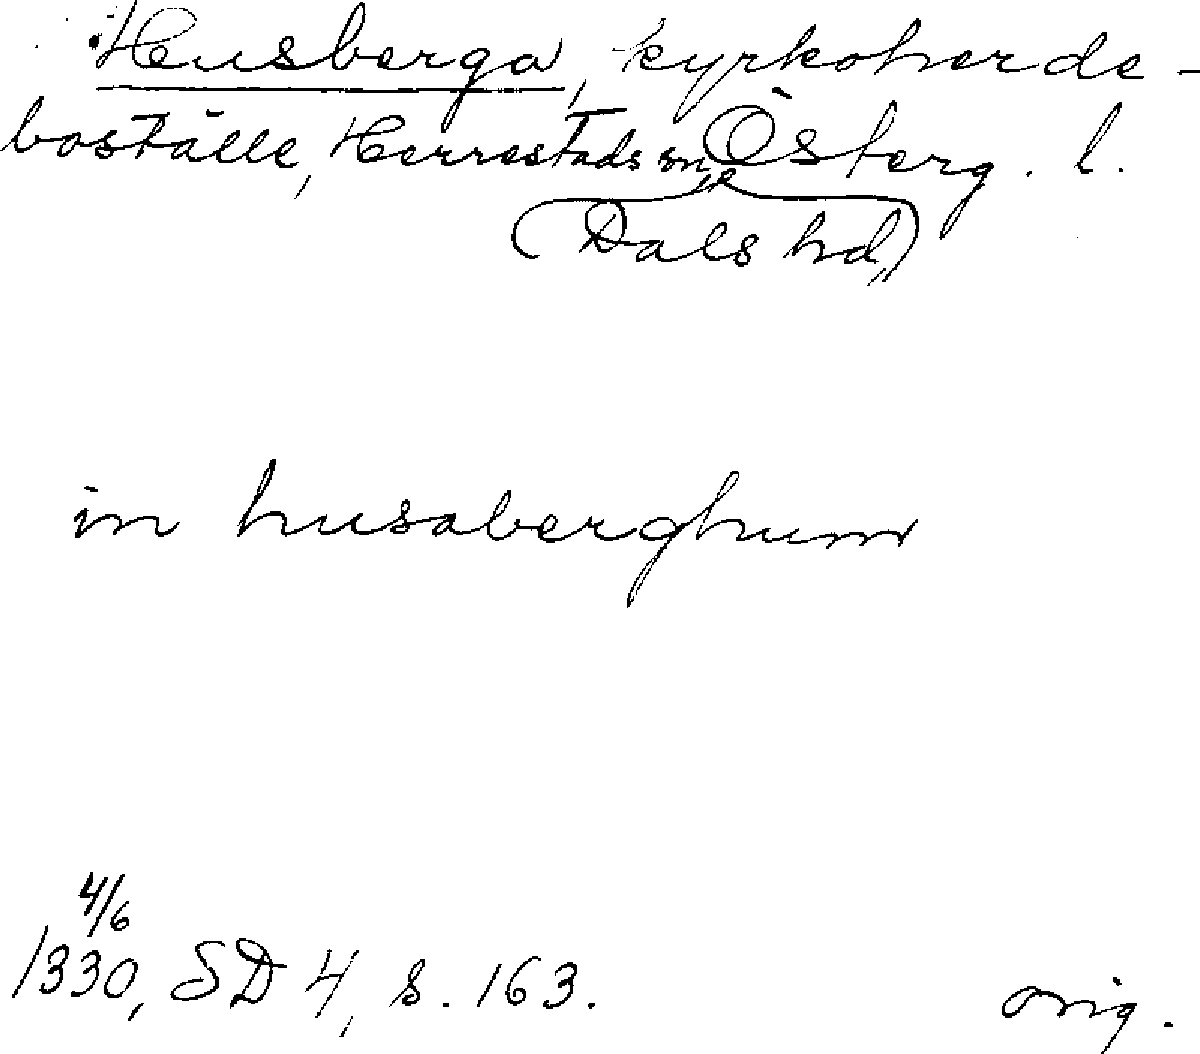 Husberga, kyrkoherde-
boställe, Herrestads sn, Österg. l.
(Dals hd)
in husaberghum
4/6
1330, SD 4, s. 163.
orig.